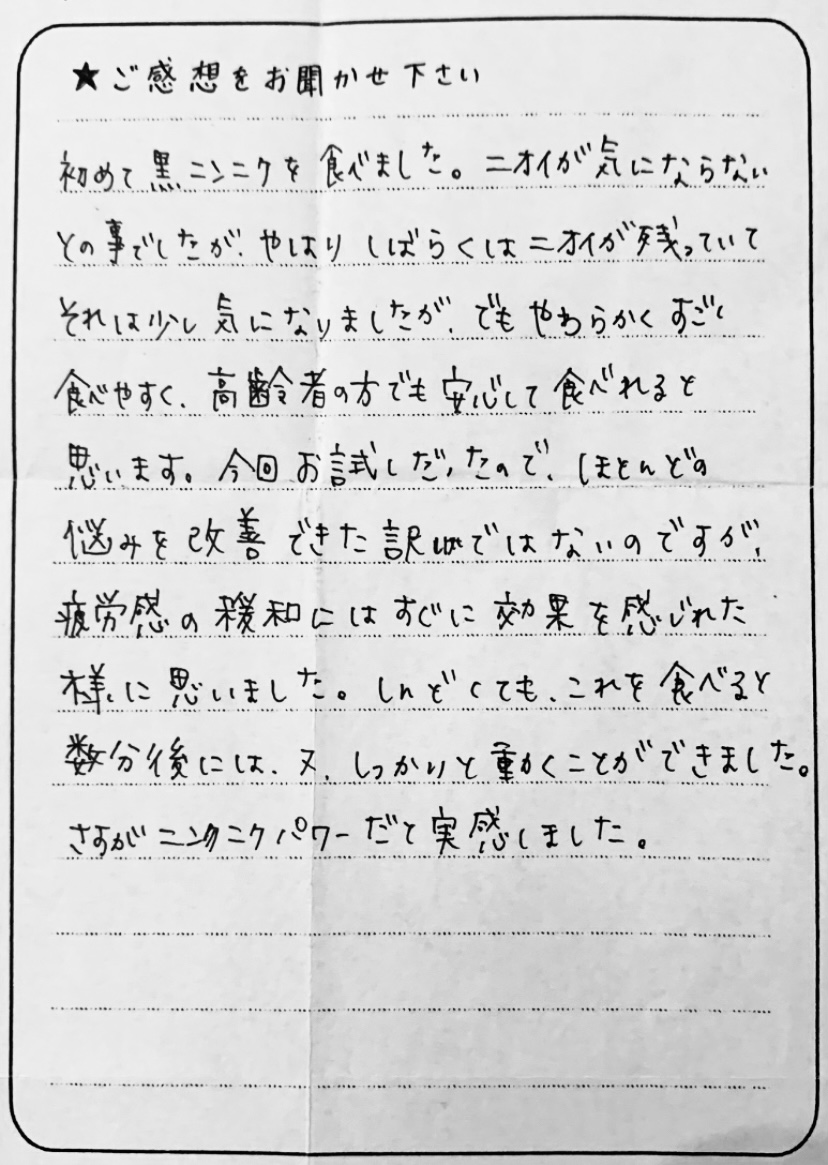 ★ご感想をお聞かせ下さい
初めて黒ニンニクを食べました。ニオイが気にならない
との事でしたが、やはりしばらくはニオイが残っていて
それは少し気になりましたが、でもやわらかくすごく
食べやすく、高齢者の方でも安心して食べれると
思います。今回お試しだったので、ほとんどの
悩みを改善できた訳ではないのですが、
疲労感の緩和にはすぐに効果を感じれた
様に思いました。しんどくても、これを食べると
数分後には、又、しっかりと動くことができました。
さすがニンクニクパワーだと実感しました。